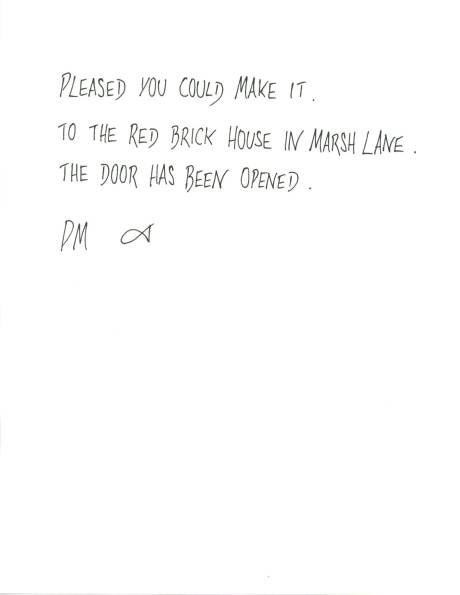 PLEASED YOU COULD MAKE IT.
TO THE RED BRICK HOUSE IN MARSH LANE.
THE DOOR HAS BEEN OPENED.
DM